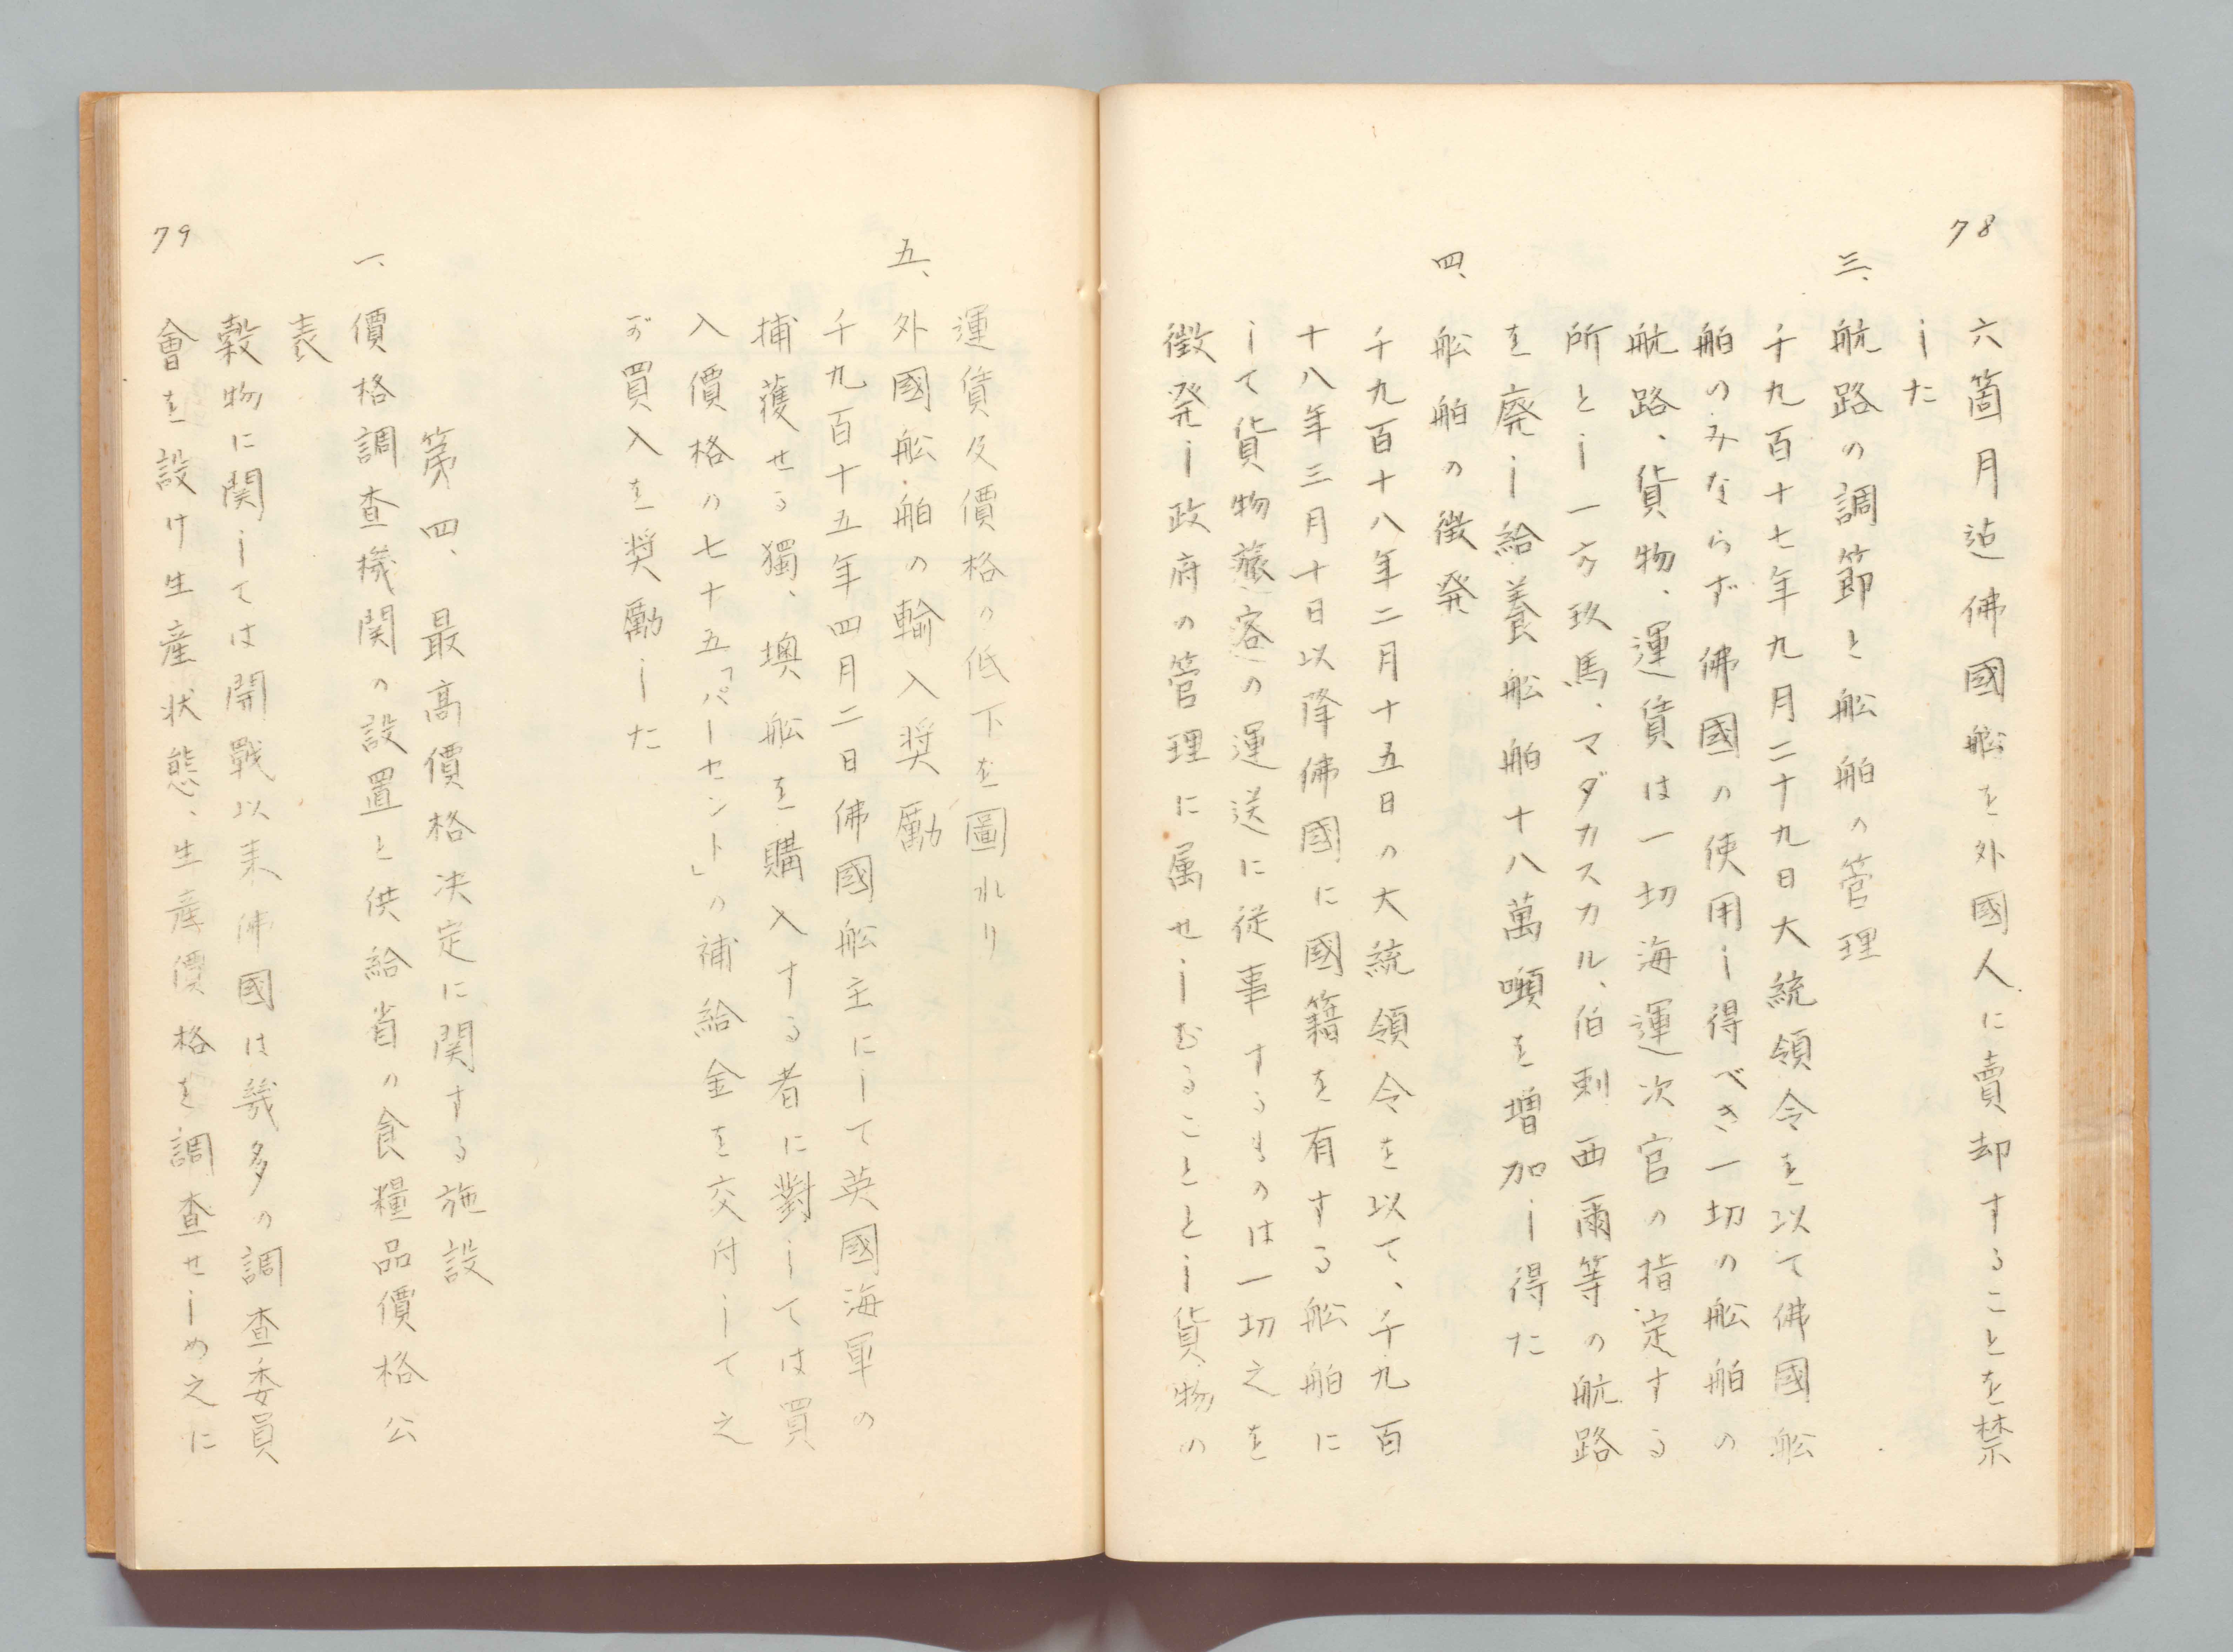 78
六箇月迠佛國舩を外國人に賣却することを禁
した
三、航路の調節と舩舶の管理
千九百十七年九月二十九日大統領令を以て佛國舩
舶のみならず佛國の使用し得べき一切の舩舶の
航路、貨物、運賃は一切海運次官の指定する
所とし一方玖馬、マダカスカル、伯剌西爾等の航路
を廃し給養舩舶十八萬噸を増加し得た
四、舩舶の徴発
千九百十八年二月十五日の大統領令を以て、千九百
十八年三月十日以降佛國に國籍を有する舩舶に
して貨物旅客の運送に従事するものは一切之を
徴発し政府の管理に属せしむることとし貨物の
運賃及價格の低下を圖れり
五、外國舩舶の輸入奨勵
千九百十五年四月二日佛國舩主にして英國海軍の
捕獲せる獨、墺舩を購入する者に對しては買
入價格の七十五「パーセント」の補給金を交付して之
が買入を奨勵した
第四、最高價格決定に関する施設
一、價格調査機関の設置と供給省の食糧品價格公
表
穀物に関しては開戰以来佛國は幾多の調査委員
會を設け生産状態、生産價格を調査せしめ之に
79